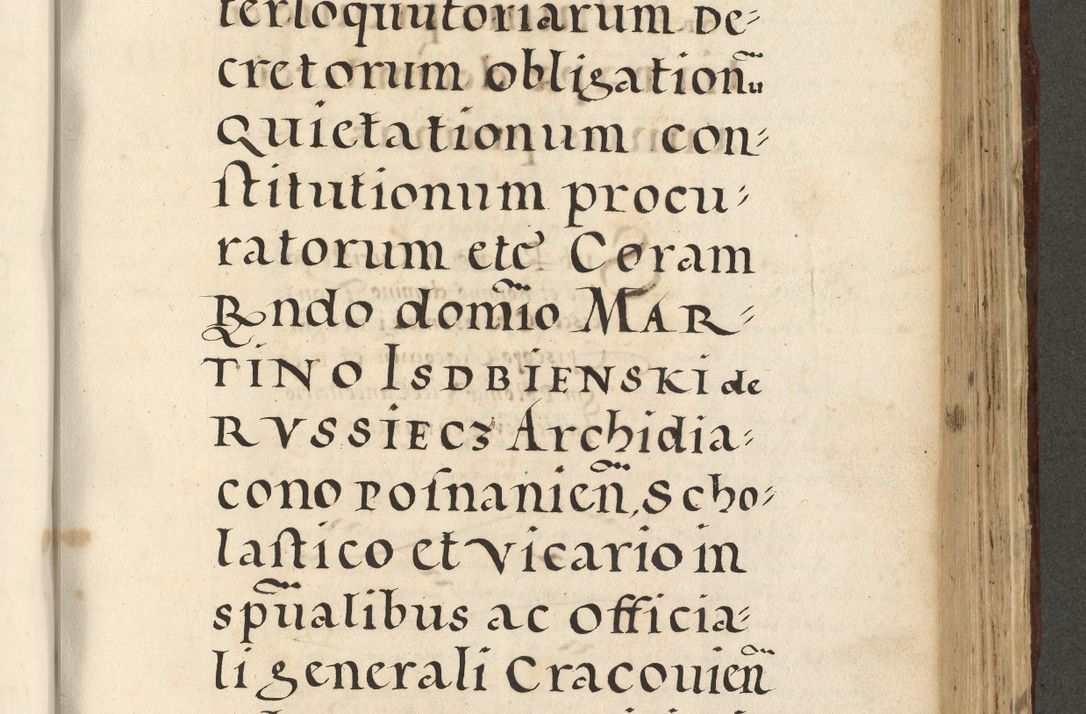 terloquutoriarum De⸗
cretorum obligationũ
Quietationum con⸗
ſtitutionum procu⸗
ratorum etc̃ Coram
Rndo domĩo MAR⸗
TINO ISDBIENSKI de
RVSSIECZ Archidia⸗
cono Poſnanieñ, Scho⸗
laſtico et Vicario in
sp̃ualibus ac Officia⸗
li generali Cracouieñ